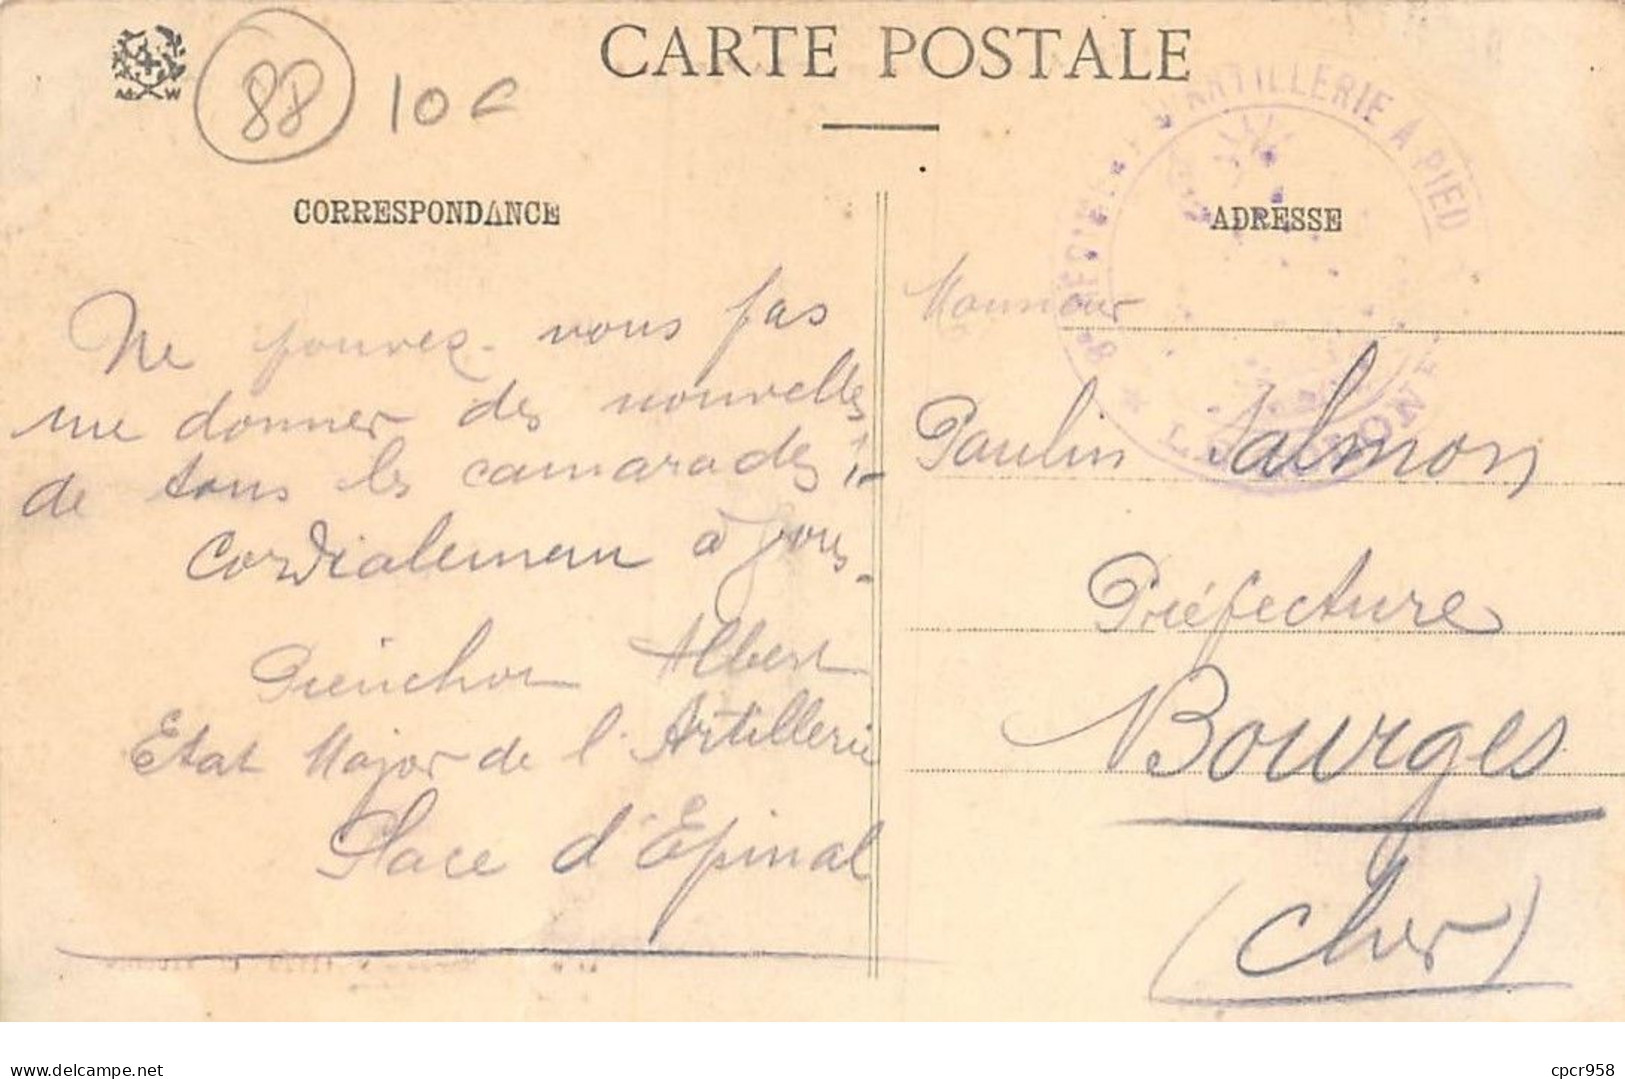 88 10c
CARTE POSTALE
8e RÉGIMENT D'ARTILLERIE A PIED
CORRESPONDANCE
ADRESSE
Ne pouvez-vous pas
me donner des nouvelles
de tous les camarades ?
Cordialement à vous.
Albert
Etat Major de l'Artillerie
Place d'Epinal
Monsieur
Paulin Salmon
Préfecture
Bourges
(Cher)
delcampe.net
cpcr958